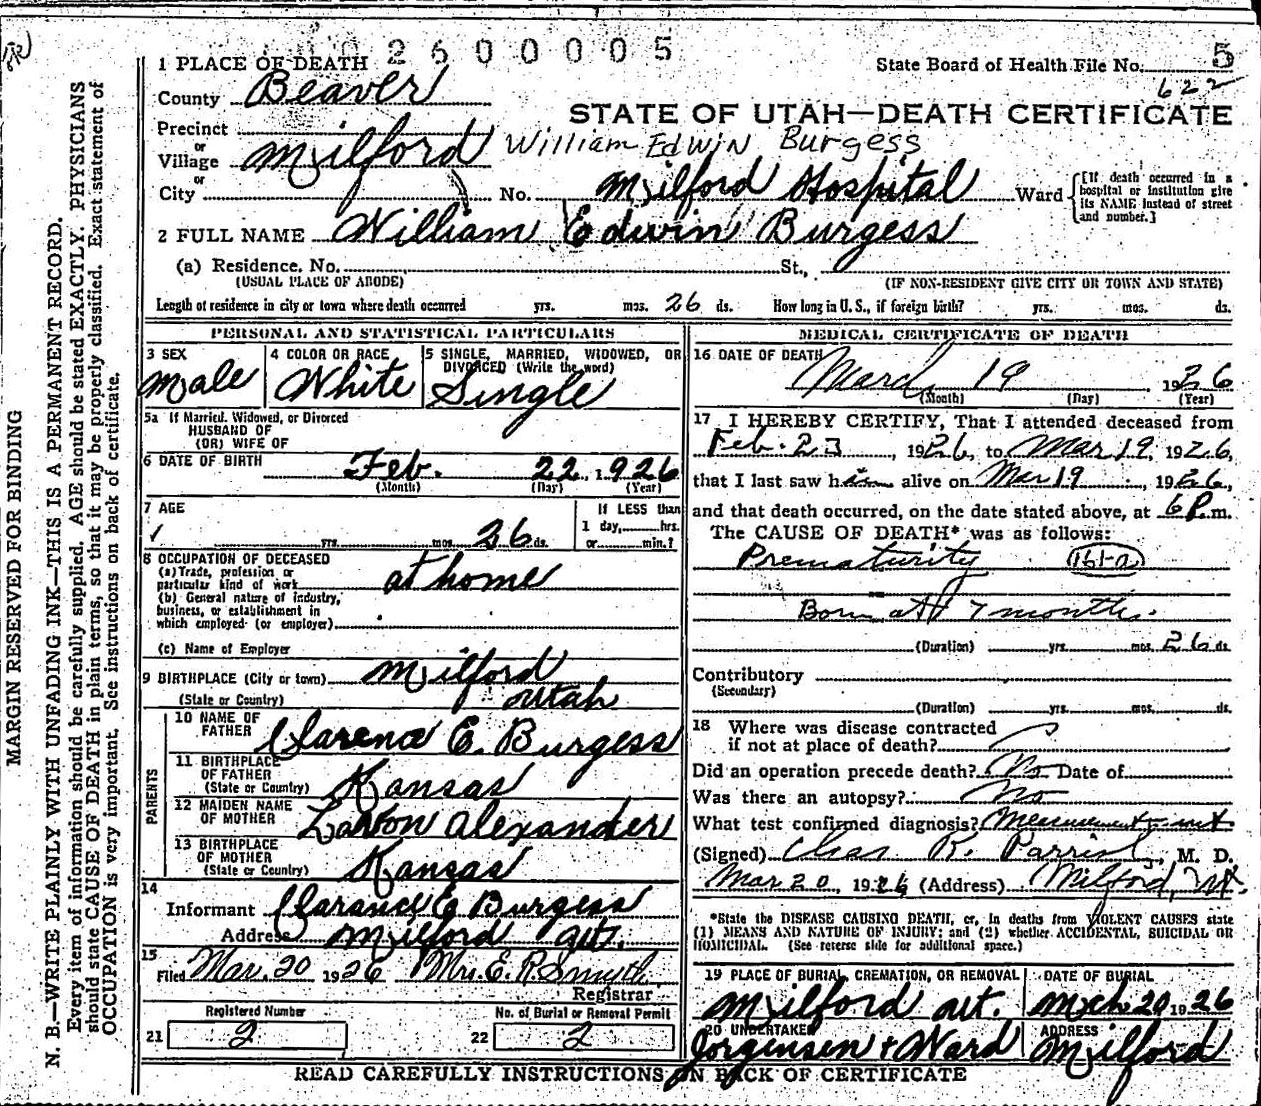 2600005
1 PLACE OF DEATH
State Board of Health File No. 5
622
County Beaver
STATE OF UTAH—DEATH CERTIFICATE
Precinct
or
Village Milford William Edwin Burgess
or
City No. Milford Hospital Ward
[If death occurred in a hospital or institution give its NAME instead of street and number.]
2 FULL NAME William Edwin Burgess
(a) Residence. No. St.,
(USUAL PLACE OF ABODE) (IF NON-RESIDENT GIVE CITY OR TOWN AND STATE)
Length of residence in city or town where death occurred yrs. mos. 26 ds. How long in U. S., if foreign birth? yrs. mos. ds.
PERSONAL AND STATISTICAL PARTICULARS
3 SEX
Male
4 COLOR OR RACE
White
5 SINGLE, MARRIED, WIDOWED, OR
DIVORCED (Write the word)
Single
5a If Married, Widowed, or Divorced
HUSBAND OF
(OR) WIFE OF
6 DATE OF BIRTH Feb. 22, 1926
(Month) (Day) (Year)
7 AGE
yrs. mos. 26 ds.
If LESS than
1 day, hrs.
or min.?
8 OCCUPATION OF DECEASED
(a) Trade, profession or
particular kind of work at home
(b) General nature of industry,
business, or establishment in
which employed (or employer)
(c) Name of Employer
9 BIRTHPLACE (City or town) Milford
(State or Country) Utah
PARENTS
10 NAME OF
FATHER Clarence E. Burgess
11 BIRTHPLACE
OF FATHER
(State or Country) Kansas
12 MAIDEN NAME
OF MOTHER Alexander
13 BIRTHPLACE
OF MOTHER
(State or Country) Kansas
14
Informant Clarance E Burgess
Address Milford Ut.
15
Filed Mar. 20 1926 Mrs. E. R. Smyth
Registrar
Registered Number
21 2
No. of Burial or Removal Permit
22 2
MEDICAL CERTIFICATE OF DEATH
16 DATE OF DEATH
March 19, 1926
(Month) (Day) (Year)
17 I HEREBY CERTIFY, That I attended deceased from
Feb. 23, 1926, to Mar 19, 1926,
that I last saw him alive on Mar 19, 1926,
and that death occurred, on the date stated above, at 6 P. m.
The CAUSE OF DEATH* was as follows:
Prematurity 161-a
Born at 7 months.
(Duration) yrs. mos. 26 ds.
Contributory
(Secondary)
(Duration) yrs. mos. ds.
18 Where was disease contracted
if not at place of death?
Did an operation precede death? No Date of
Was there an autopsy? No
What test confirmed diagnosis? Measurement
(Signed) Chas R. Parrish, M. D.
Mar 20, 1926 (Address) Milford, Ut.
*State the DISEASE CAUSING DEATH, or, in deaths from VIOLENT CAUSES state
(1) MEANS AND NATURE OF INJURY; and (2) whether ACCIDENTAL, SUICIDAL OR
HOMICIDAL. (See reverse side for additional space.)
19 PLACE OF BURIAL, CREMATION, OR REMOVAL
Milford Ut.
DATE OF BURIAL
Mch 20 1926
20 UNDERTAKER
Jorgensen + Ward
ADDRESS
Milford
READ CAREFULLY INSTRUCTIONS ON BACK OF CERTIFICATE
MARGIN RESERVED FOR BINDING
N. B.—WRITE PLAINLY WITH UNFADING INK—THIS IS A PERMANENT RECORD.
Every item of information should be carefully supplied. AGE should be stated EXACTLY. PHYSICIANS
should state CAUSE OF DEATH in plain terms, so that it may be properly classified. Exact statement of
OCCUPATION is very important. See instructions on back of certificate.